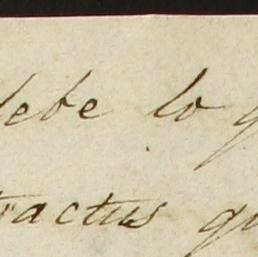 debe lo q
tractus qu